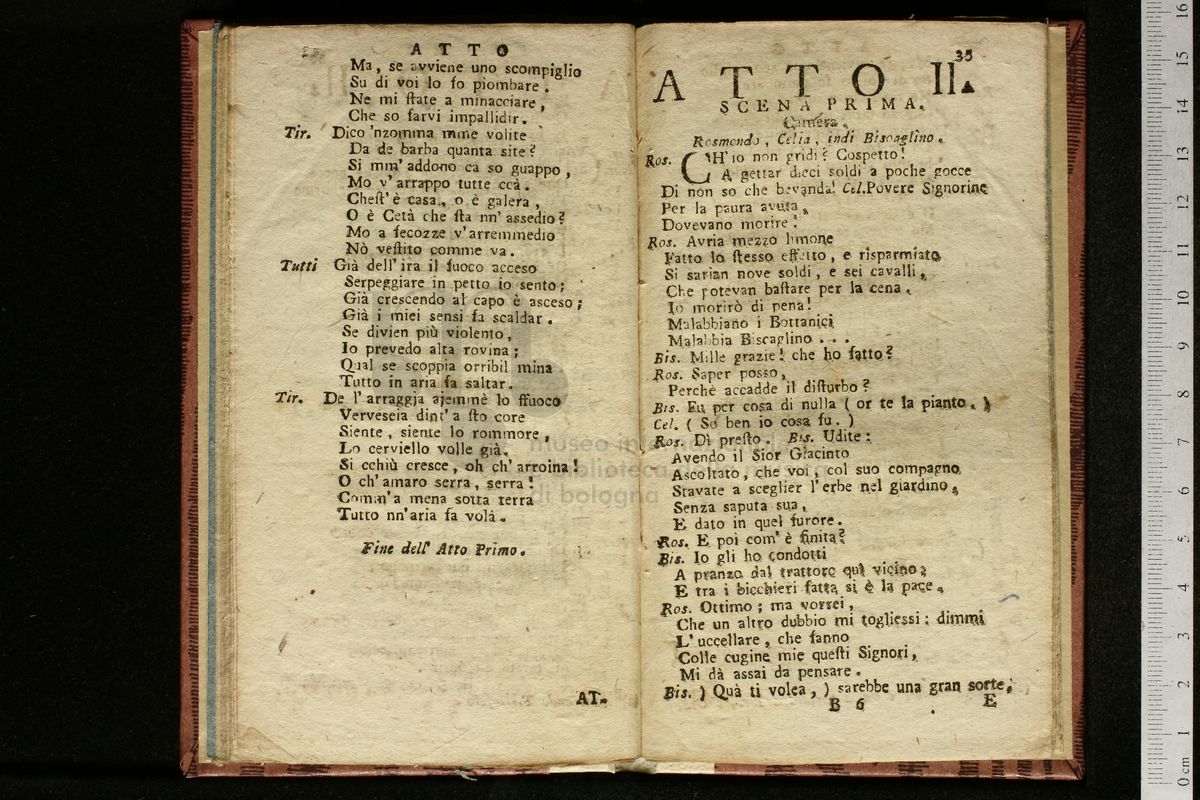 ATTO
Ma, se avviene uno scompiglio
Su di voi lo fo piombare.
Ne mi ſtate a minacciare,
Che so farvi impallidir.
Tir. Dico 'nzomma mme volite
Da de barba quanta site?
Si mm' addono ca so guappo,
Mo v' arrappo tutte ccà.
Cheſt' è casa, o è galera,
O è Cetà che ſta nn' assedio?
Mo a ſecozze v'arremmedio
Nò veſtito comme va.
Tutti Già dell' ira il fuoco acceso
Serpeggiare in petto io sento;
Già crescendo al capo è asceso;
Già i miei sensi fa scaldar.
Se divien più violento,
Io prevedo alta rovina;
Qual se scoppia orribil mina
Tutto in aria fa saltar.
Tir. De l' arraggja ajemmè lo ffuoco
Verveseia dint' a ſto core
Siente, siente lo rommore,
Lo cerviello volle già.
Si cchiù cresce, oh ch' arroina!
O ch' amaro serra, serra!
Comm' a mena sotta terra
Tutto nn'aria fa volà.
Fine dell' Atto Primo.
AT-
35
ATTO II.
SCENA PRIMA.
Camera.
Rosmondo, Celia, indi Biscaglino.
Ros. CH' io non gridi? Cospetto!
A gettar dieci soldi a poche gocce
Di non so che bevanda! Cel. Povere Signorine
Per la paura avuta,
Dovevano morire!
Ros. Avria mezzo limone
Fatto lo ſtesso effetto, e risparmiato
Si sarian nove soldi, e sei cavalli,
Che potevan baſtare per la cena.
Io morirò di pena!
Malabbiano i Bottanici
Malabbia Biscaglino . . .
Bis. Mille grazie! che ho fatto?
Ros. Saper posso,
Perchè accadde il diſturbo?
Bis. Fu per cosa di nulla ( or te la pianto. )
Cel. ( So ben io cosa fu. )
Ros. Dì preſto. Bis. Udite:
Avendo il Sior Giacinto
Ascoltato, che voi, col suo compagno
Stavate a sceglier l'erbe nel giardino,
Senza saputa sua,
E dato in quel furore.
Ros. E poi com' è finita?
Bis. Io gli ho condotti
A pranzo dal trattore quì vicino;
E tra i bicchieri fatta si è la pace.
Ros. Ottimo; ma vorrei,
Che un altro dubbio mi togliessi: dimmi
L' uccellare, che fanno
Colle cugine mie queſti Signori,
Mi dà assai da pensare.
Bis. ) Quà ti volea, ) sarebbe una gran sorte,
B 6
E
museo internazionale
biblioteca della musica
di bologna